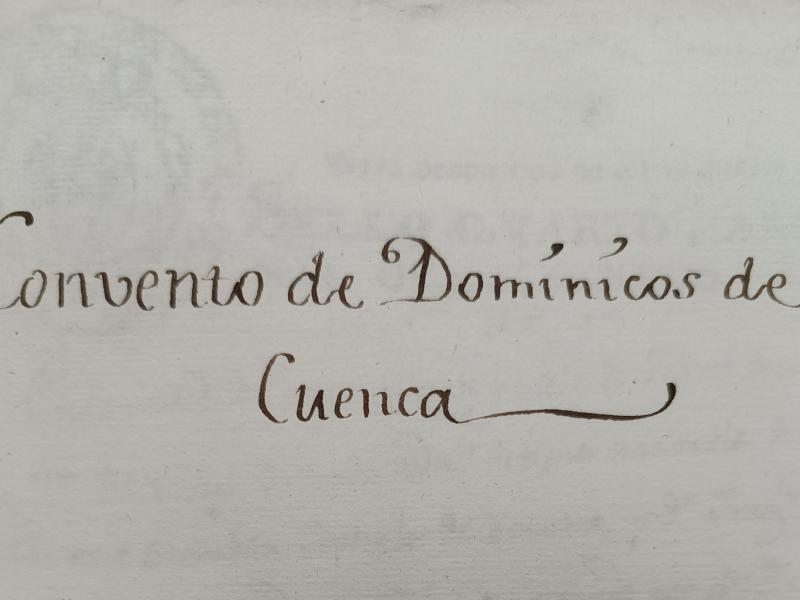 Convento de Domínicos de
Cuenca